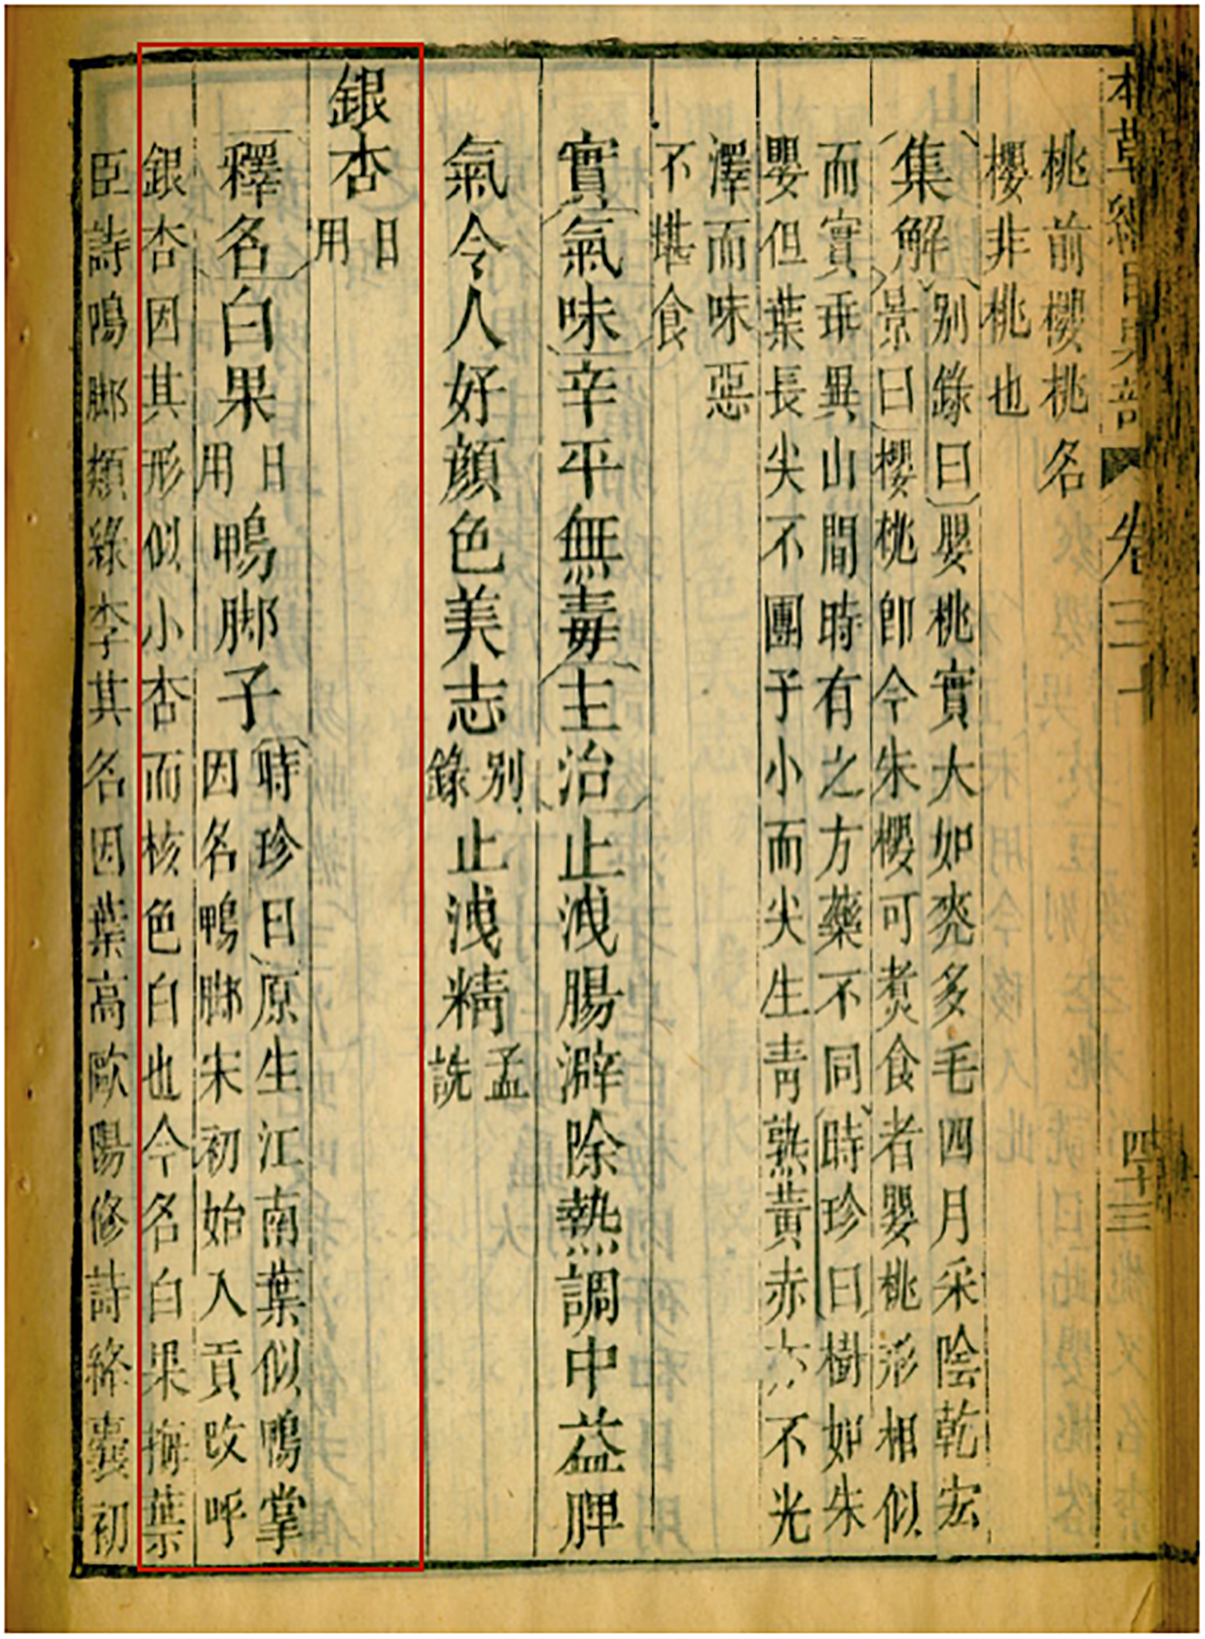 桃前櫻桃名
櫻非桃也
集解別錄曰嬰桃實大如麥多毛四月采陰乾宏
景曰櫻桃卽今朱櫻可煑食者嬰桃形相似
而實乖異山間時有之方藥不同時珍曰樹如朱
嬰但葉長尖不團子小而尖生青熟黃赤亦不光
澤而味惡
不堪食
實氣味辛平無毒主治止洩腸澼除熱調中益脾
氣令人好顏色美志別錄止洩精孟詵
銀杏日用
釋名白果日用鴨脚子時珍曰原生江南葉似鴨掌
因名鴨脚宋初始入貢改呼
銀杏因其形似小杏而核色白也今名白果梅堯
臣詩鴨脚類綠李其名因葉高歐陽修詩絳囊初
本草綱目果部 卷三十 四十三